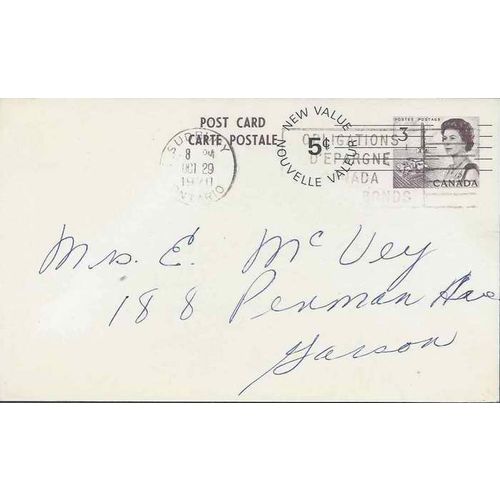 POST CARD
CARTE POSTALE
NEW VALUE
5¢
NOUVELLE VALEUR
POSTES POSTAGE
3
CANADA
SUDBURY
8 PM
OCT 29
1970
ONTARIO
OBLIGATIONS
D'EPARGNE
CANADA
BONDS
Mrs. E. McVey
188 Penman Ave
Garson